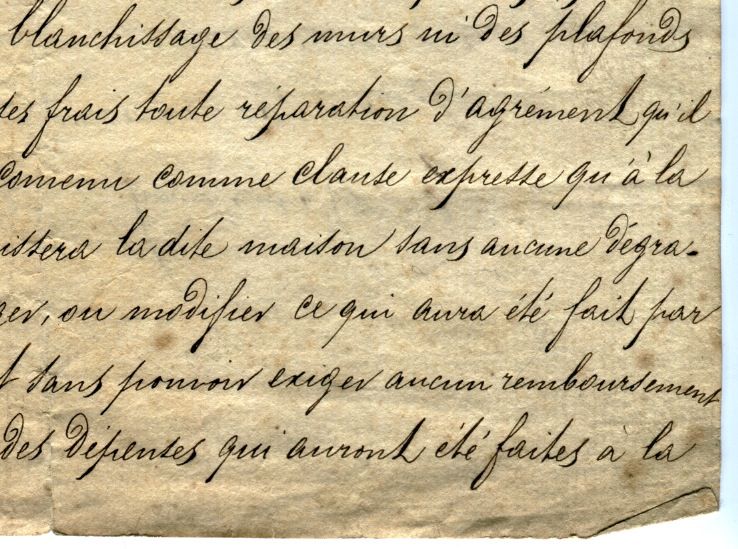 blanchissage des murs ni des plafonds
ses frais toute réparation d'agrément qu'il
comenu comme clause expresse qu'à la
issera la dite maison sans aucune dégra-
ger, ou modifier ce qui aura été fait par
t sans pouvoir exiger aucun remboursement
des dépenses qui auront été faites à la